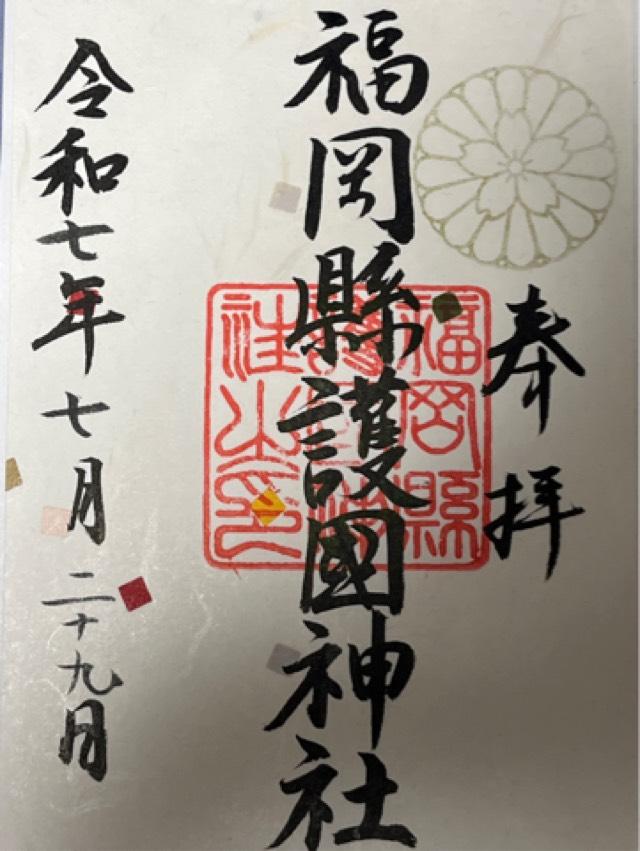 奉拝
福岡縣護國神社
令和七年七月二十九日
福岡縣
社之印